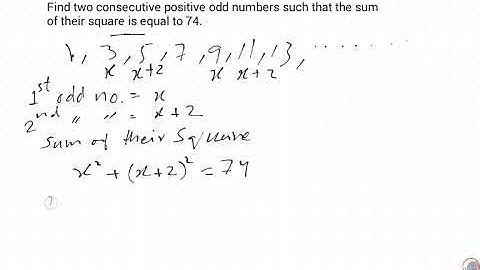 Find two consecutive positive odd numbers such that the sum
of their square is equal to 74.
1, 3, 5, 7, 9, 11, 13, ........
x x+2 x x+2
1st odd no. = x
2nd " " = x+2
Sum of their Square
x² + (x+2)² = 74